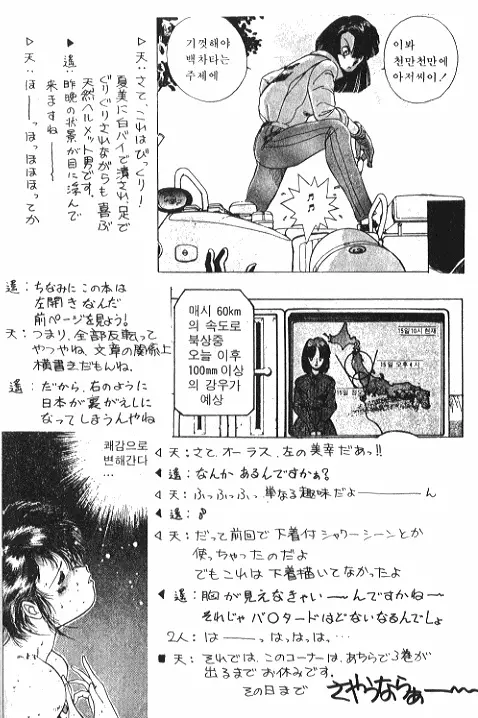 ▷天:さて、これはびっくり!
夏美に白バイで潰され、足で
ぐりぐりされながらも喜ぶ
天然ヘルメット男です。
▶遥:昨晩の状景が目に浮んで
来ますね——
▷天:ほ——っほっほほほってか
이봐
천만천만에
아저씨이!
기껏해야
백차타는
주제에
遥:ちなみにこの本は
左開きなんだ
前ページを見よう!
天:つまり、全部反転って
やつやね。文章の関係上
横書きだもんね。
遥:だから、右のように
日本が裏がえしに
なってしまうんやね
매시 60km
의 속도로
북상중
오늘 이후
100mm 이상
의 강우가
예상
15일10시 현재
15일 오후4시
쾌감으로
변해간다
…
◁天:さて、オーラス、左の美幸だあっ!!
◀遥:なんかあるんですかぁ?
◁天:ふっふっふっ、単なる趣味だよ————ん
◀遥:
◁天:だって前回で下着付シャワーシーンとか
使っちゃったのだよ
でもこれは下着描いてなかったよ
◀遥:胸が見えなきゃい——んですかね—
それじゃバ○タードはどないなるんでしょ
2人:は——っはっはっは、…
■天:それでは、このコーナーは、あちらで3巻が
出るまでお休みです。
その日まで さようならぁ——